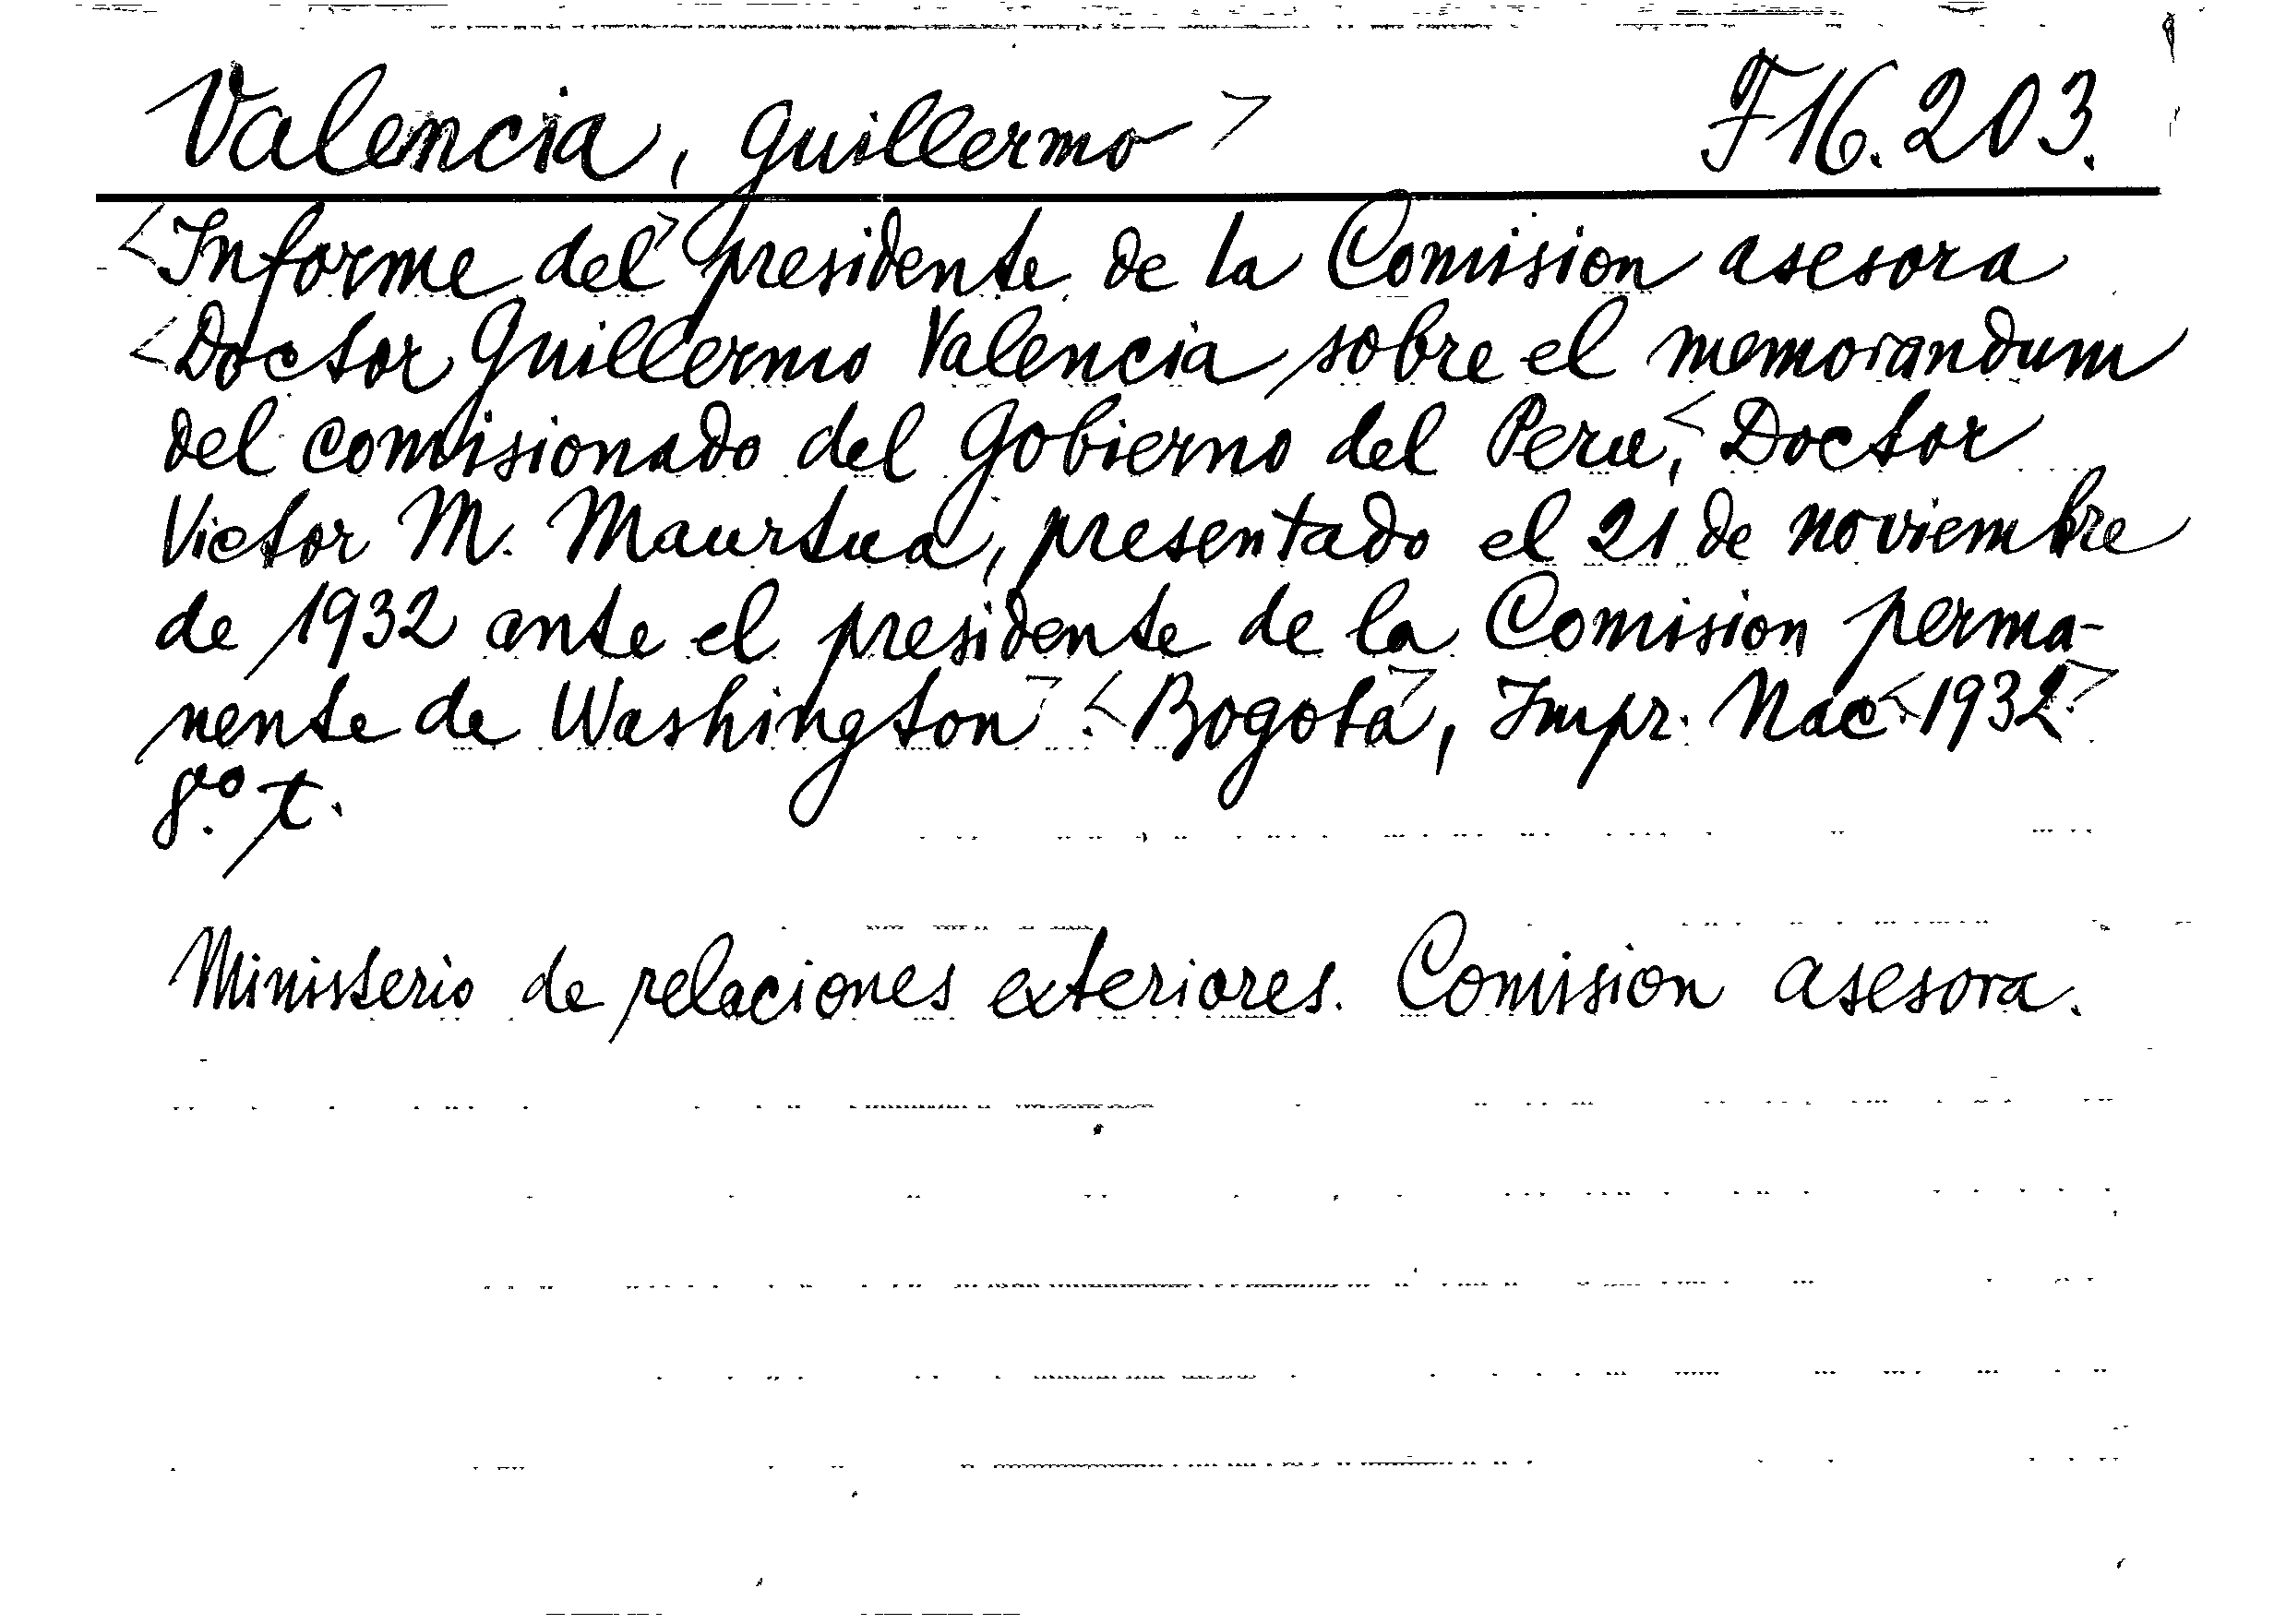 Valencia, Guillermo> F16.203.
<Informe del> presidente de la Comision asesora
<Doctor Guillermo Valencia sobre el memorandum
del comisionado del Gobierno del Peru,< Doctor
Victor M. Maurtua, presentado el 21 de noviembre
de 1932 ante el presidente de la Comision perma-
nente de Washington>. <Bogotá>, Impr. Nac.<1932.>
8.º t.
Ministerio de relaciones exteriores. Comision asesora.